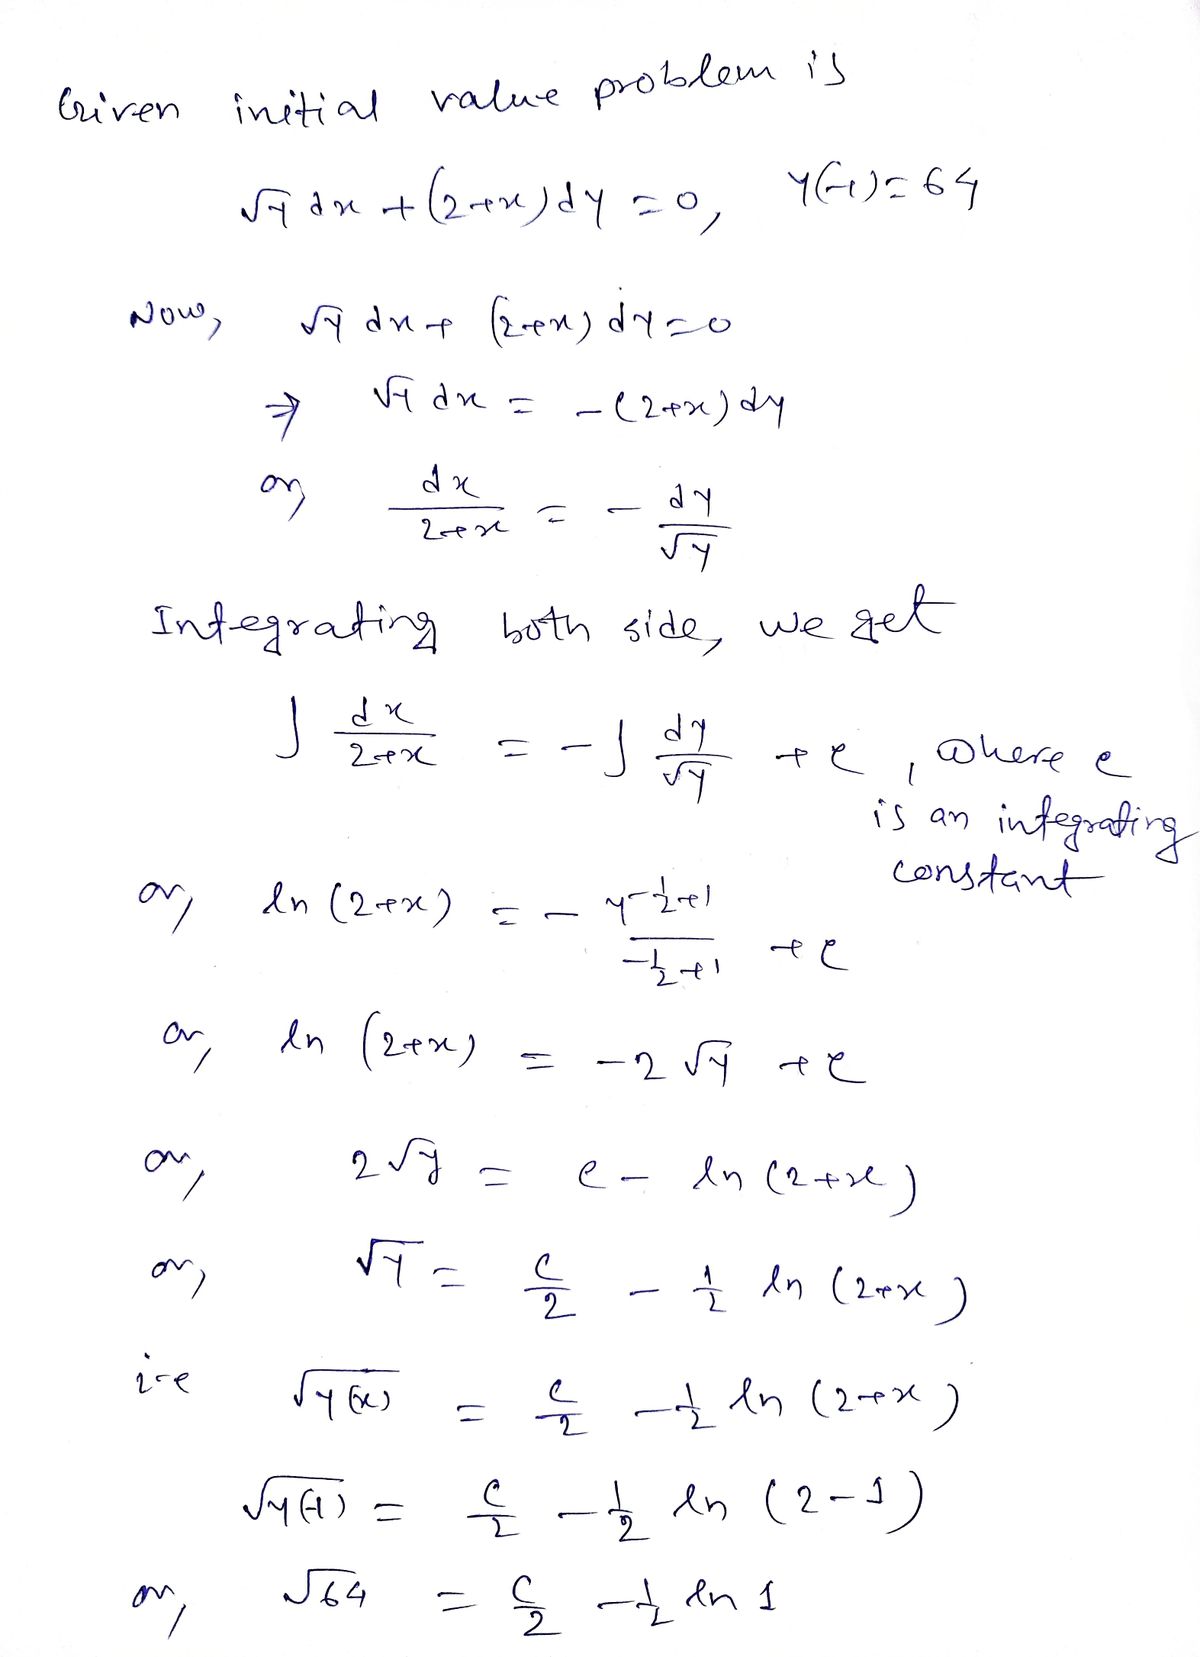 Given initial value problem is
√y dx + (2+x)dy = 0, y(-1) = 64
Now, √y dx + (2+x) dy = 0
⇒ √y dx = -(2+x) dy
or, dx/(2+x) = - dy/√y
Integrating both side, we get
∫ dx/(2+x) = -∫ dy/√y + c, where c
is an integrating
constant
or, ln (2+x) = - y^(-1/2+1)/(-1/2+1) + c
or, ln (2+x) = -2√y + c
or, 2√y = c - ln (2+x)
or, √y = c/2 - 1/2 ln (2+x)
i-e √y(x) = c/2 - 1/2 ln (2+x)
√y(-1) = c/2 - 1/2 ln (2-1)
or, √64 = c/2 - 1/2 ln 1